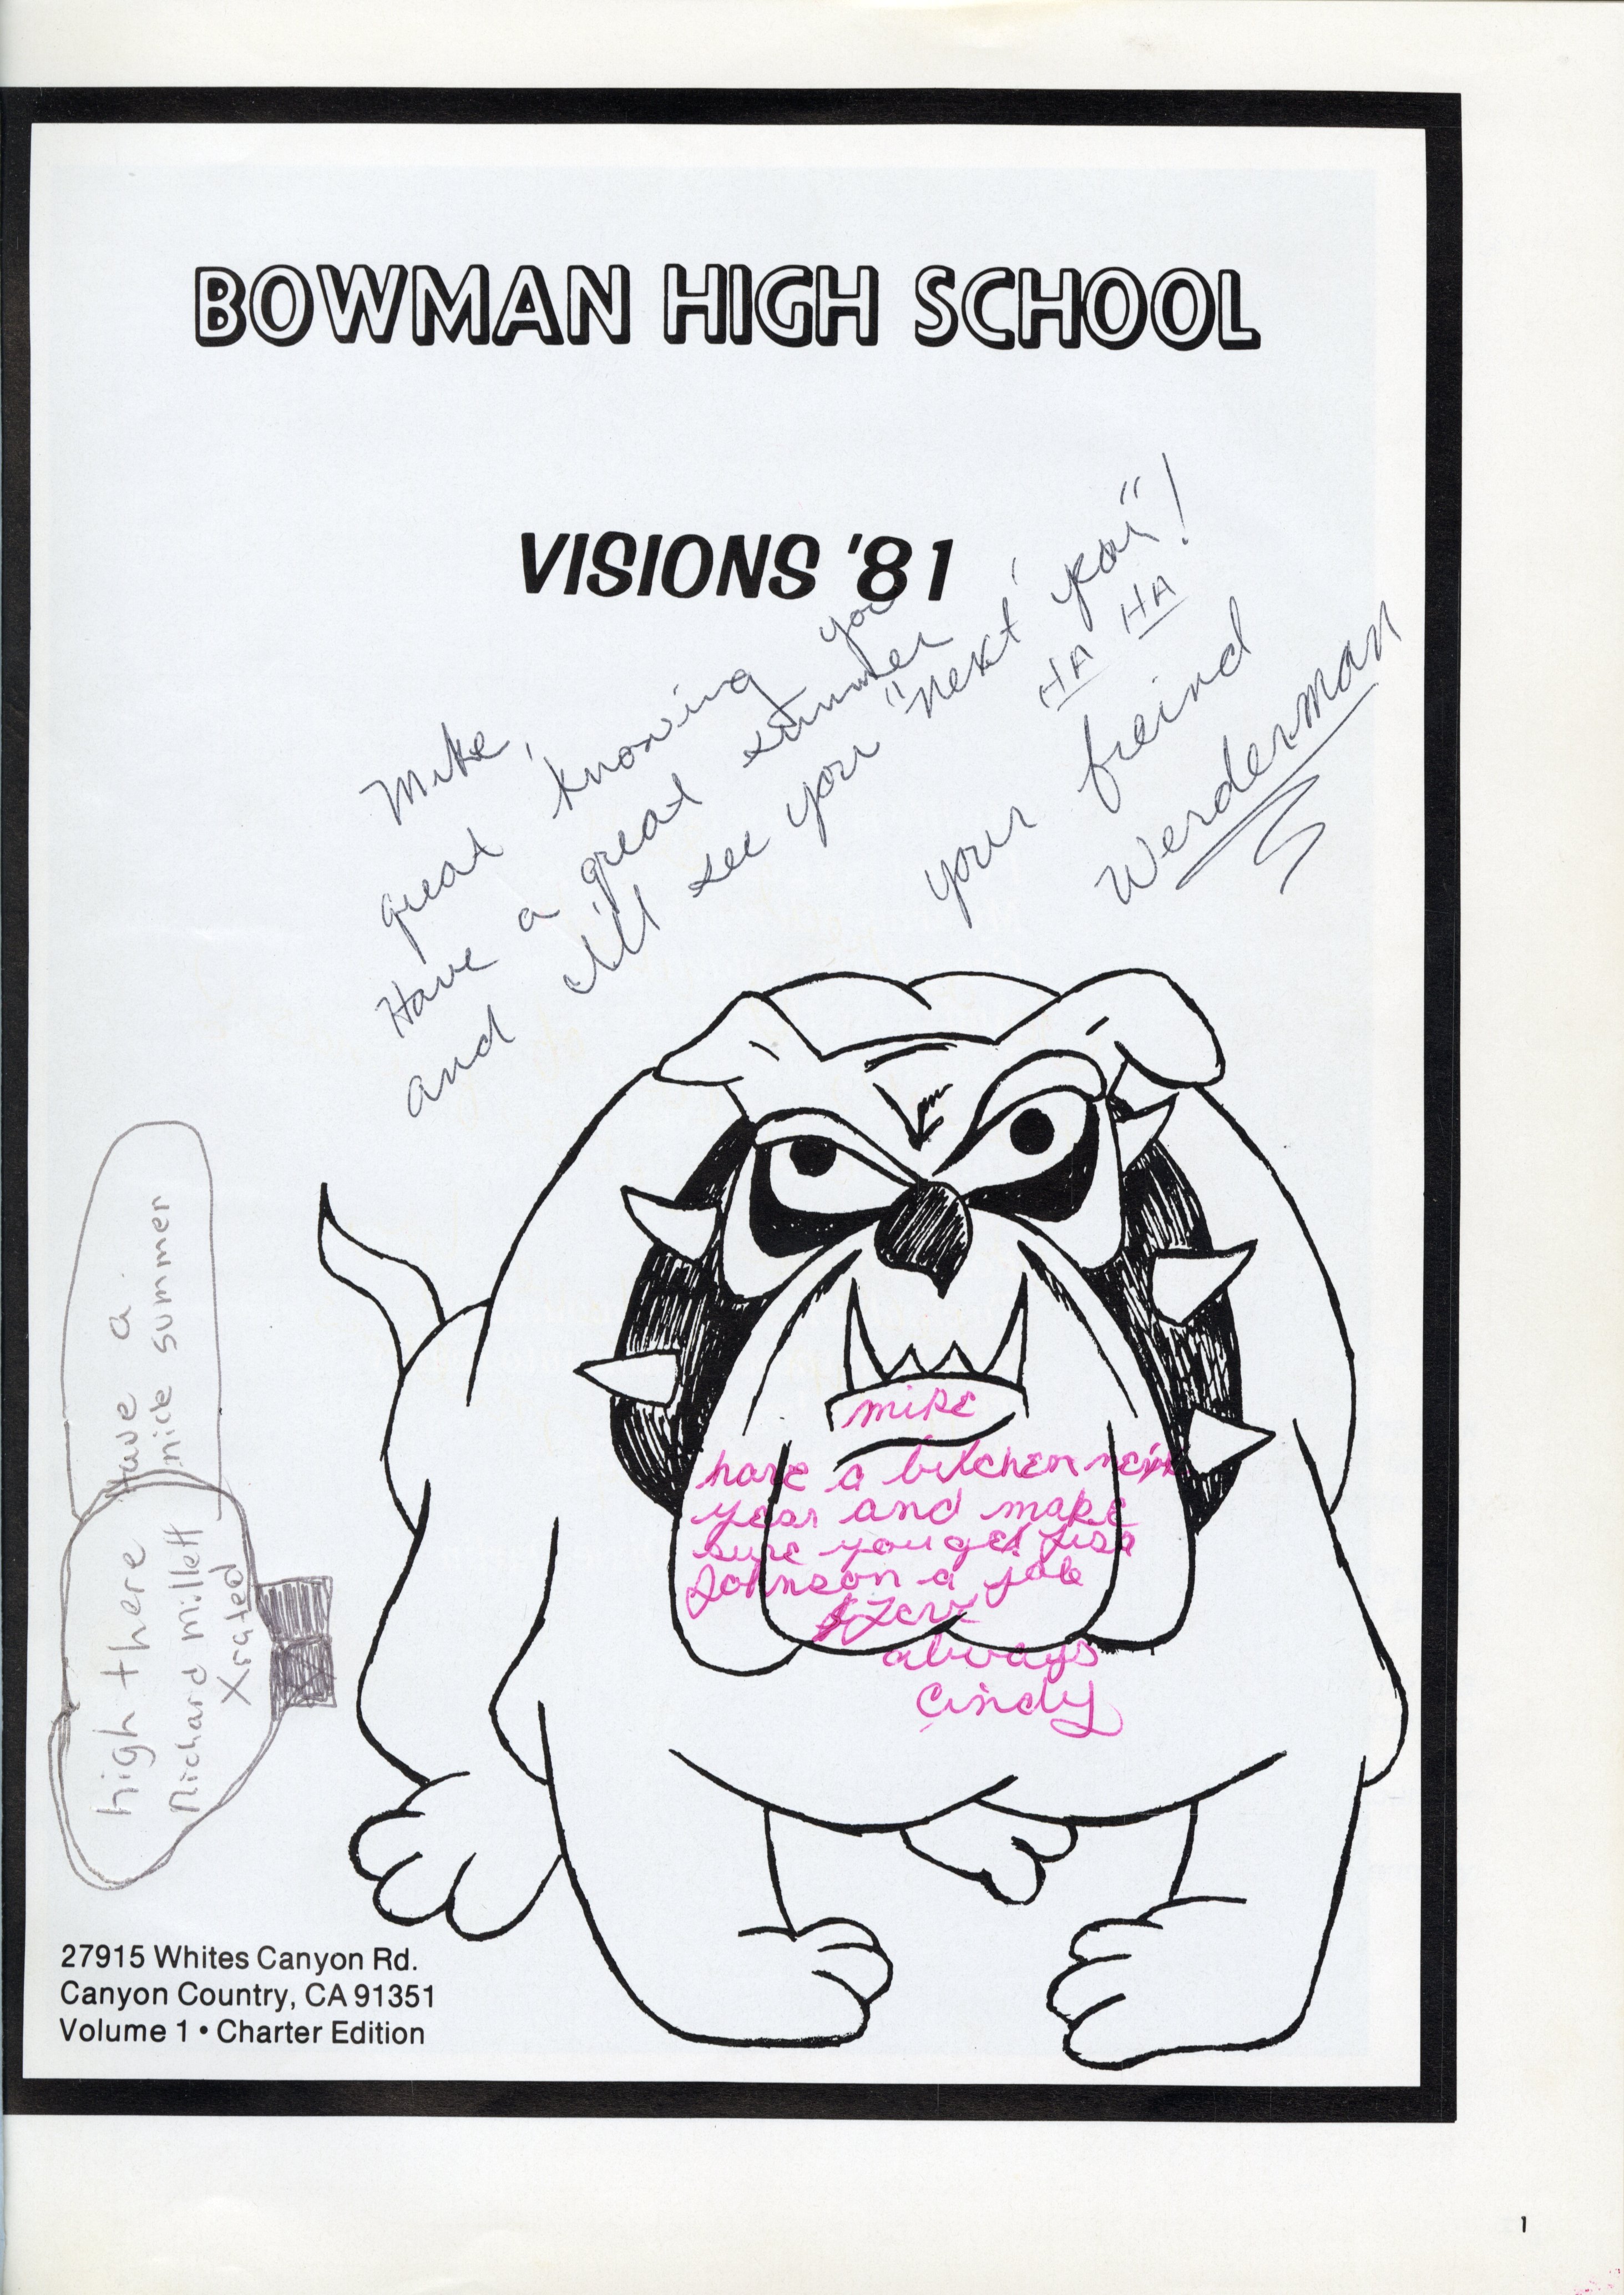 BOWMAN HIGH SCHOOL
VISIONS '81
Mike,
great knowing you
Have a great summer
and i'll see you "next" year"!
HA HA
your freind
Werderman
Have a
nice summer
high there
Richard millett
Xrated
mike
have a bitchen next
year and make
sure you get Lisa
Johnson a job
always
Cindy
27915 Whites Canyon Rd.
Canyon Country, CA 91351
Volume 1 • Charter Edition
1